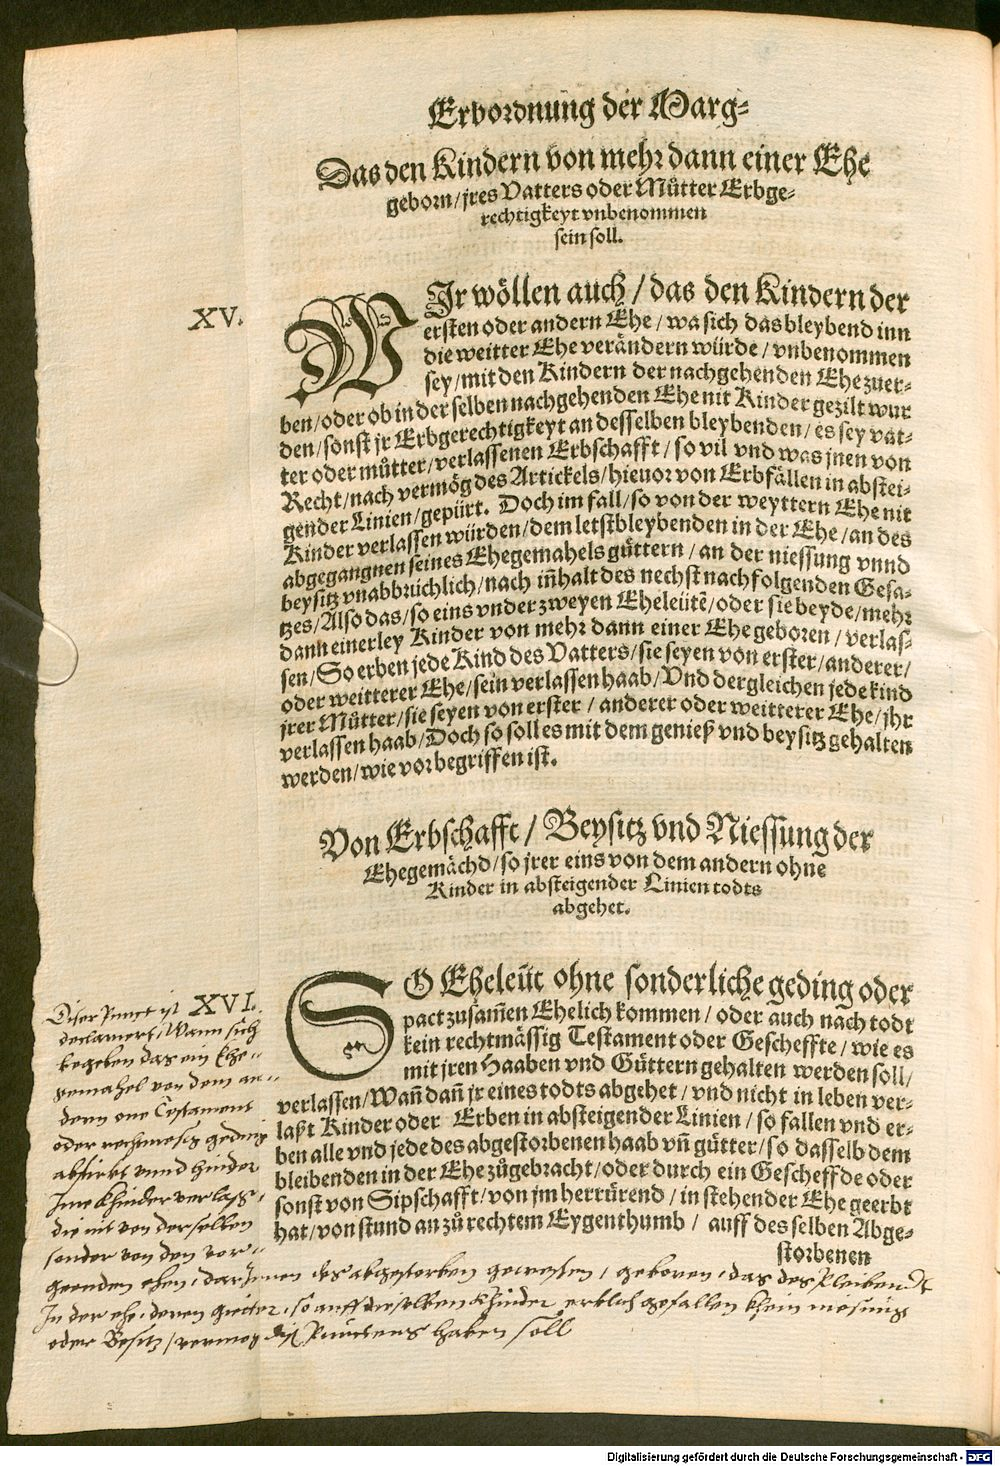 Erbordnung der Marg⸗
Das den Kindern von mehr dann einer Ehe
geborn / jres Vatters oder Můtter Erbge⸗
rechtigkeyt vnbenommen
sein soll.
XV.
WJr wöllen auch / das den Kindern der
ersten oder andern Ehe / wa sich das bleybend inn
die weitter Ehe verändern würde / vnbenommen
sey / mit den Kindern der nachgehenden Ehe zuer⸗
ben / oder ob in der selben nachgehenden Ehe nit Kinder gezilt wur
den / sonst jr Erbgerechtigkeyt an desselben bleybenden / es sey vat⸗
ter oder můtter / verlassenen Erbschafft / so vil vnd was jnen von
Recht / nach vermög des Artickels / hieuor von Erbfällen in abstei⸗
gender Linien / gepürt. Doch im fall / so von der weyttern Ehe nit
Kinder verlassen würden / dem letstbleybenden in der Ehe / an des
abgegangnen seines Ehegemahels güttern / an der niessung vnnd
beysitz vnabbrüchlich / nach iñhalt des nechst nachfolgenden Gesa⸗
tzes / Also das / so eins vnder zweyen Eheleütẽ / oder sie beyde / mehr
dann einerley Kinder von mehr dann einer Ehe geboren / verlas⸗
sen / So erben jede Kind des Vatters / sie seyen von erster / anderer /
oder weitterer Ehe / sein verlassen haab / Vnd dergleichen jede kind
jrer Můtter / sie seyen von erster / anderer oder weitterer Ehe / jhr
verlassen haab / Doch so soll es mit dem genieß vnd beysitz gehalten
werden / wie vorbegriffen ist.
Von Erbschafft / Beysitz vnd Niessung der
Ehegemächd / so jrer eins von dem andern ohne
Kinder in absteigender Linien todts
abgehet.
XVI.
SO Eheleüt ohne sonderliche geding oder
pact zusam̃en Ehelich kommen / oder auch nach todt
kein rechtmässig Testament oder Gescheffte / wie es
mit jren Haaben vnd Güttern gehalten werden soll /
verlassen / Wañ dañ jr eines todts abgehet / vnd nicht in leben ver⸗
laßt Kinder oder Erben in absteigender Linien / so fallen vnd er⸗
ben alle vnd jede des abgestorbenen haab vñ gütter / so dasselb dem
bleibenden in der Ehe zůgebracht / oder durch ein Gescheffde oder
sonst von Sipschafft / von jm herrürend / in stehender Ehe geerbt
hat / von stund an zů rechtem Eygenthumb / auff des selben Abge⸗
storbenen
Diser Punct ist
declariert, Wann sich
begeben das ein Ehe⸗
gemahel von dem an⸗
dern one Testament
oder rechmesig geding
abstirbt unnd hinder
Ime Khinder verlass,
die nit von derselben
sonder von den vor⸗
geenden ehen, darInnen das abgestorben gewesen, geboren, das des Pleibendt
In der ehe, deren gietter, so auff dieselben Khinder erblich gefallen khein niesung
oder Besitz, vermog diß Punctens haben soll
Digitalisierung gefördert durch die Deutsche Forschungsgemeinschaft - DFG